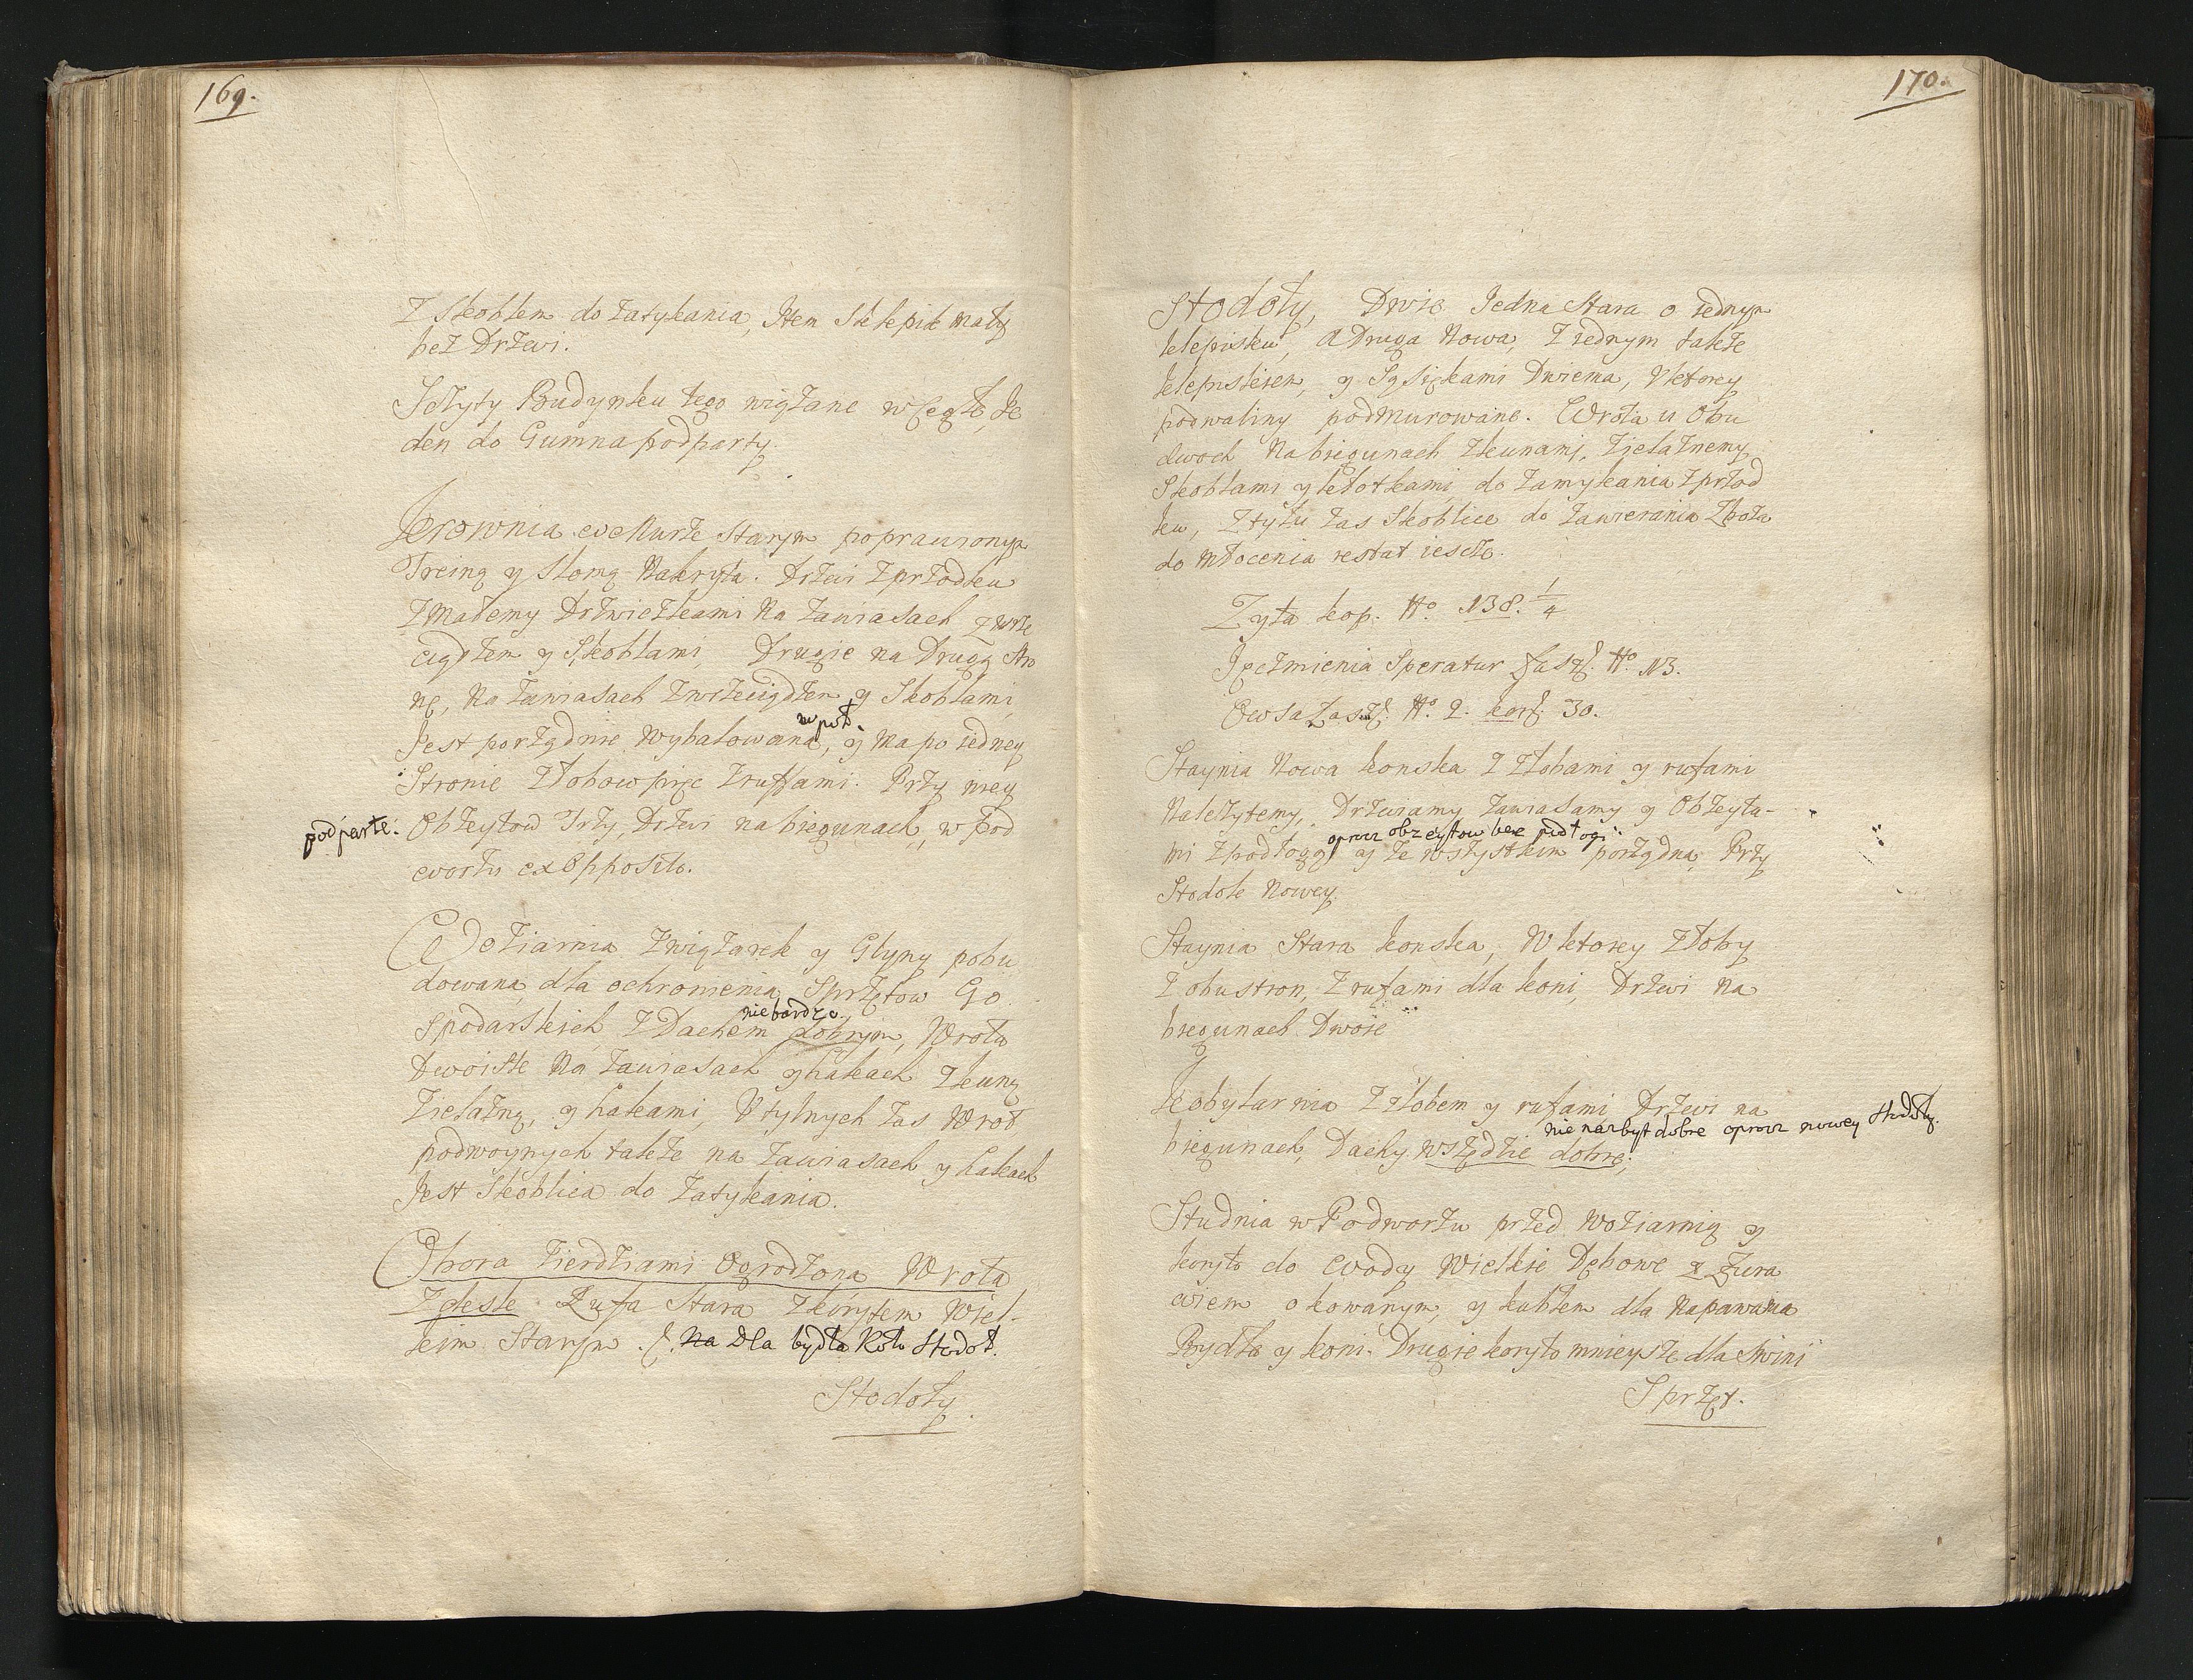 169.
Z Skoblem do Zatykania, Item Sklepik maly
bez Drzwi.
Sczyty Budynku tego wiązane w Cegłę, Je
den do Gumna podparty.
Krownia we Murze Starym poprawionym
Trciną y Słomą Nakryta. Drzwi Zprzodku
Zmałemy Drzwiczkami Na Zawiasach z Wrze
ciądzem y Skoblami, Drugie na Drugą Stro
nę, Na Zawiasach Zwrzeciądzem y Skoblami,
w poł.
Jest porządnie Wybalowana, y Ma po iedney
Stronie Złobow pięc Zruffami. Przy niey
podparte. Obzeytow Trzy, Drzwi na biegunach, w Pod
worzu ex Opposito.
Woziarnia Związarek y Gliny pobu
dowana dla ochronienia Sprzętow Go
niebardzo
spodarskich, Z Dachem dobrym, Wrota
Dwoiste Na Zawiasach y hakach Zkuną
Zielazną, y hakami, V tylnych Zas Wrot
podwoynych takze na Zawiasach y hakach
Jest Skoblica do Zatykania.
Obora Zierdziami Ogrodzona Wrota
Zgleste Rufa Stara Zkorytem Wiel-
kim Starym. Na Dla bydła Koło Stodoł.
Stodoły.
170.
Stodoły, Dwie Jedna Stara o iednym
klepisku, A Druga Nowa, Z iednym takze
klepiskiem, y Sąsiękami Dwiema, V ktorey
podwaliny podmurowane. Wrota u Obu
dwoch Na biegunach Zkunami, Zielaznemy
Skoblami y kłotkami do Zamykania Zprzod
ku, Ztyłu Zas Skoblice do Zawierania Zboza
do Młocenia restat iescze.
Zyta kop. No. 138. 1/4
Jęczmienia Speratur faszt. No. 13.
Owsa Zaszt. No. 2. korf. 30.
Staynia Nowa konska Z Złobami y rufami
Nalezytemy, Drzwiamy Zawiasamy y Obzeyta-
oprocz obzeytow bez podłogi
mi Zpodłogą y ze wszystkim porządna, Przy
Stodole Nowey.
Staynia Stara konska, W ktorey Złoby
Z obustron, Z rufami dla koni, Drzwi Na
biegunach Dwoie
Kobylarnia Z Złobem y rufami Drzwi na
nie nazbyt dobre oprocz nowey Stodoły.
biegunach, Dachy wszędzie dobre;
Studnia w Podworzu przed Woziarnią y
koryto do Wody Wielkie Dębowe z Zura
wiem okowanym, y kubłem dla Napawania
Bydła y koni. Drugie koryto mnieysze dla Swini
Sprzęt.